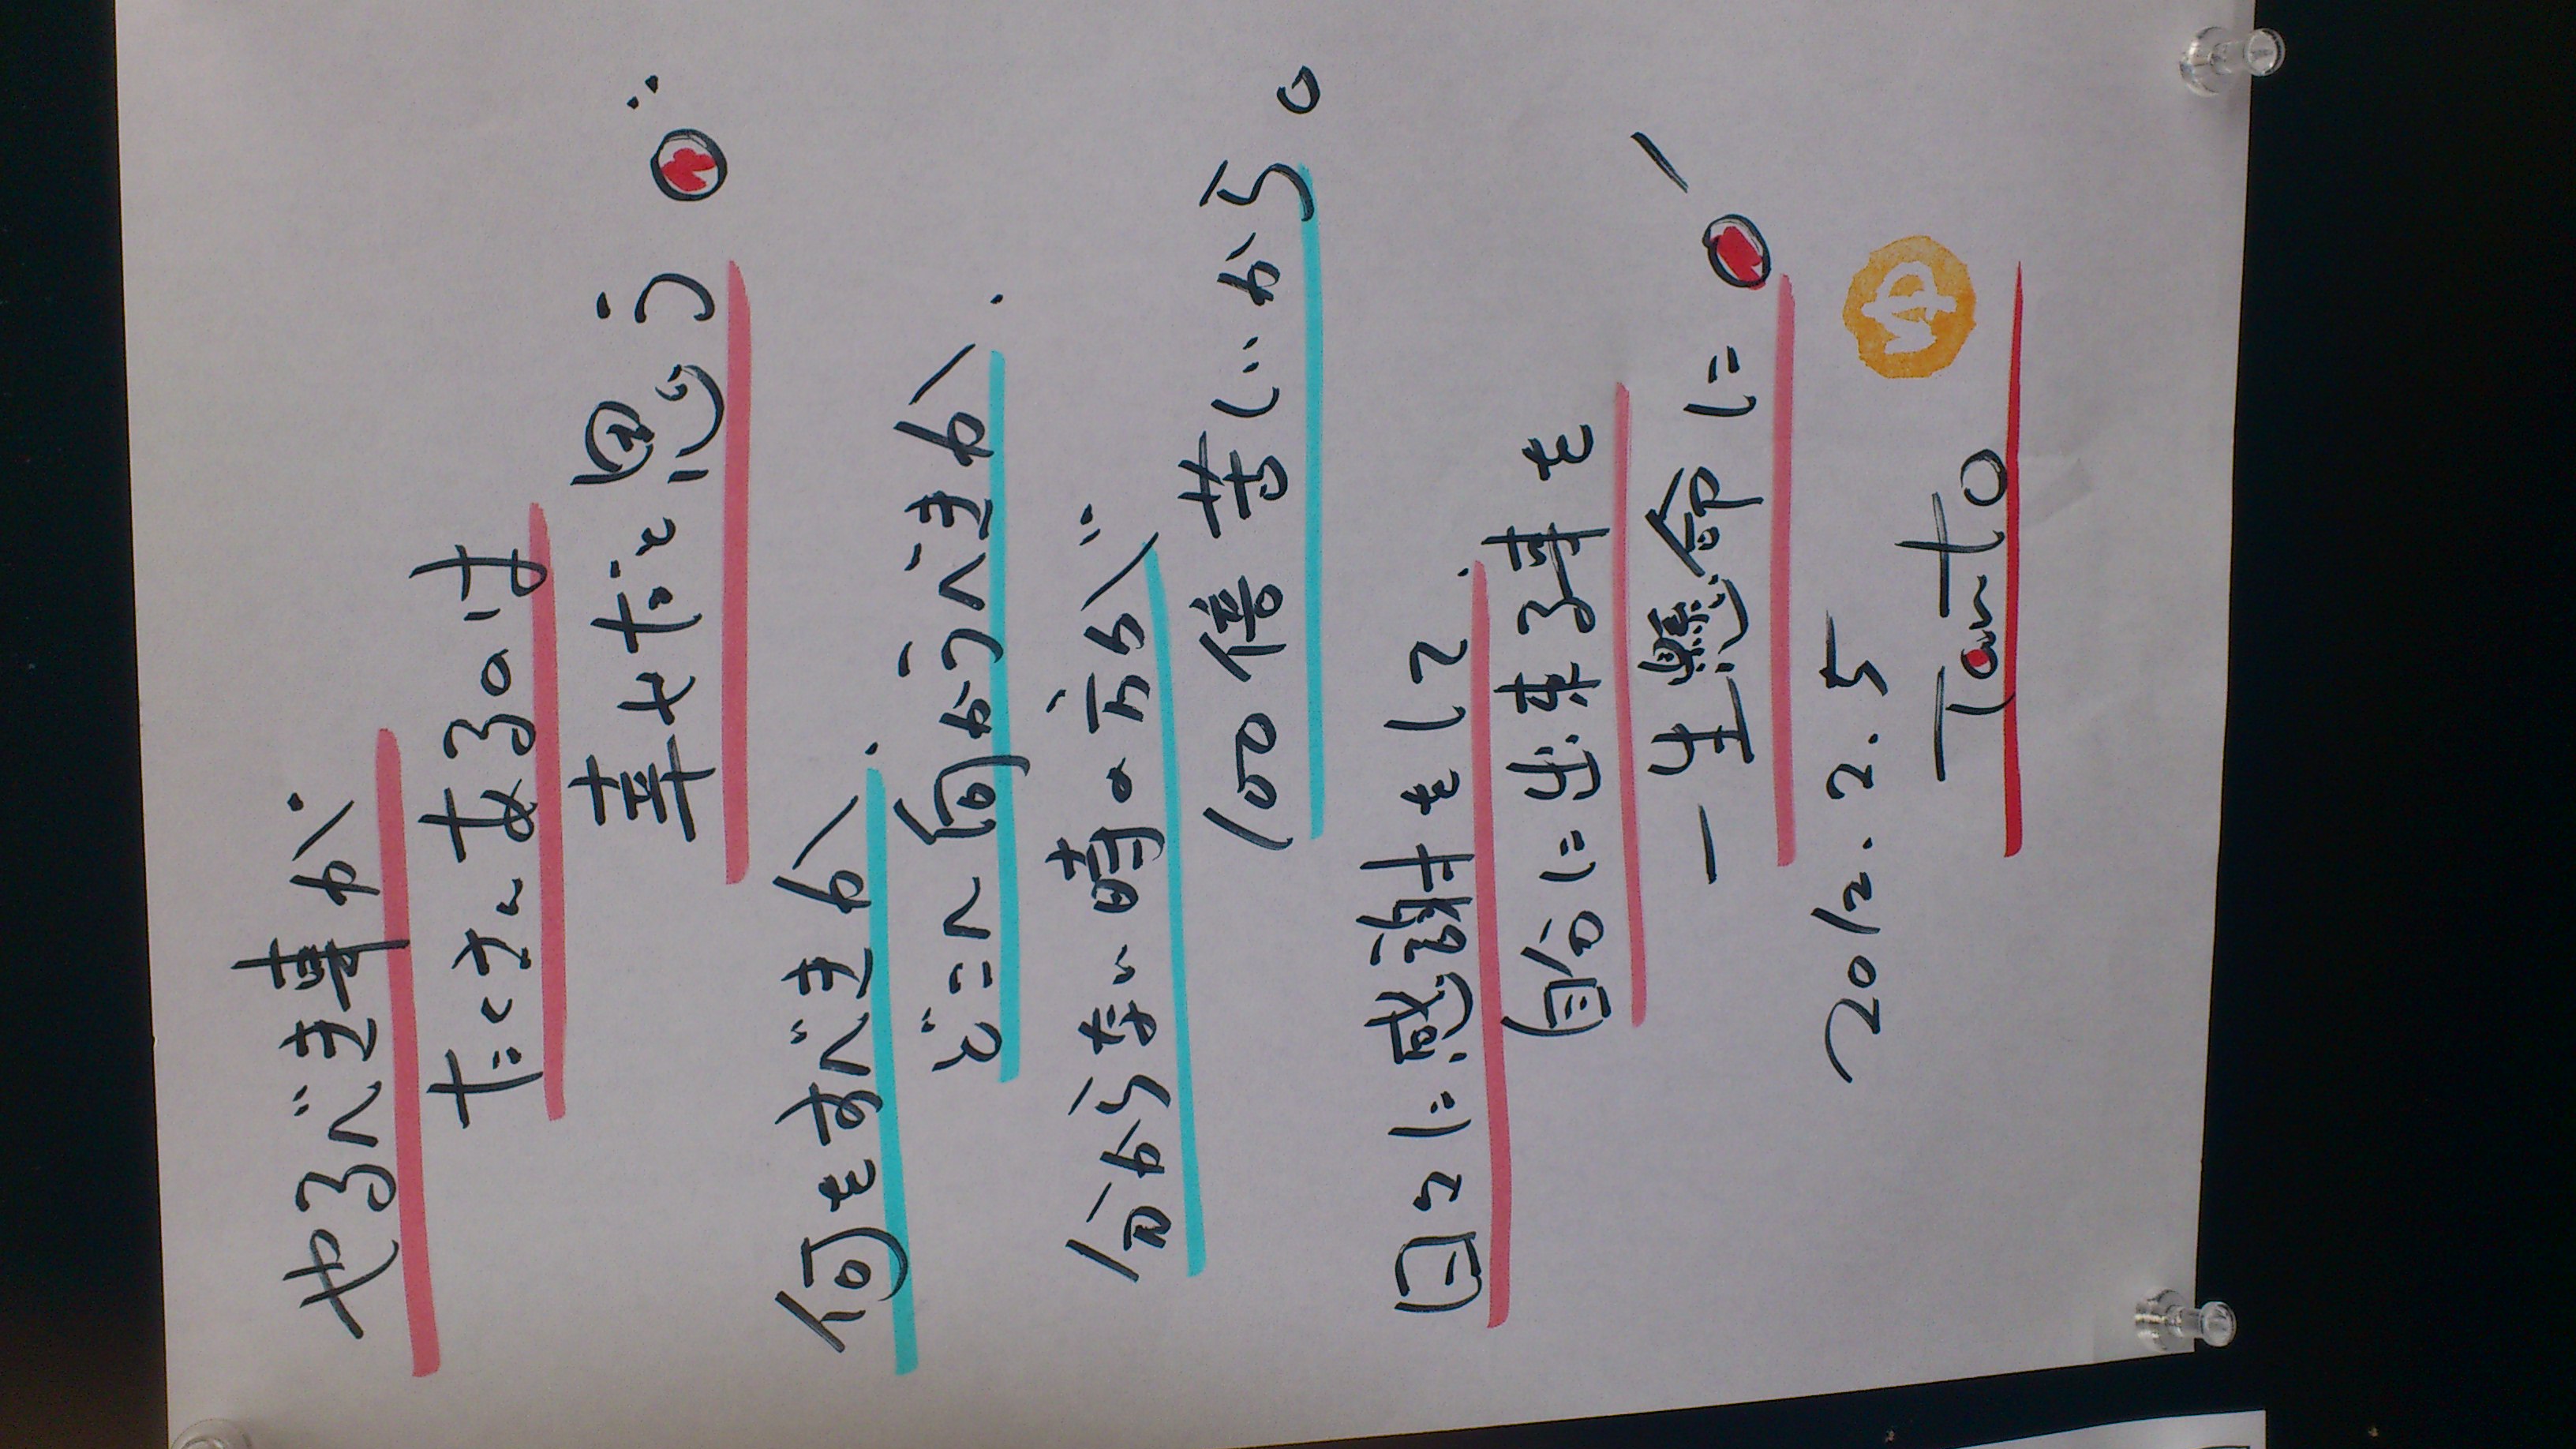 やるべき事が
たくさんあるのは
幸せだと思う。
何をすべきか.
どこへ向かうべきか.
分らない時の方が
100倍苦しいから。
日々に感謝をして.
自分に出来る事を
一生懸命に。
2012.2.5
Tanto